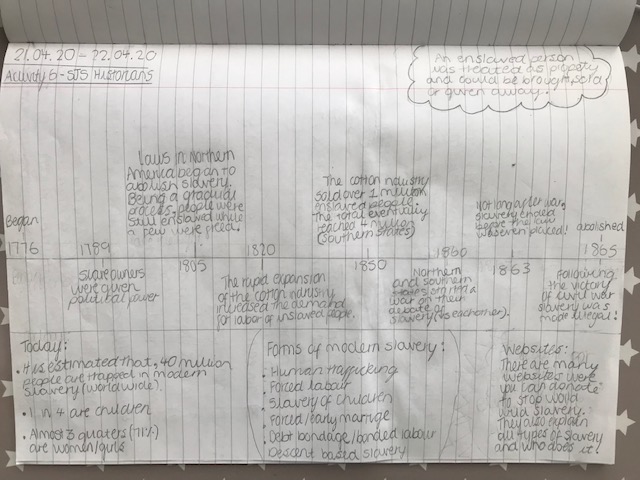 21.04.20 - 22.04.20
Activity 6 - SJS Historians
An enslaved person
was treated as property
and could be brought, sold
or given away!
Began
1776
1789
slave owners
were given
political power
Laws in Northern
America began to
abolish slavery.
Being a gradual
process, people were
still enslaved while
a few were freed.
1805
1820
The rapid expansion
of the cotton industry
increased the demand
for labor of enslaved people.
The cotton industry
sold over 1 million
enslaved people.
The total eventually
reached 4 million
(southern states)
1850
Northern
and southern
states
war on their
debate of
slavery (vs eachother).
1860
Not long after war,
slavery ended
before the law
was even placed!
1863
abolished
1865
Following
the victory
of civil war
slavery was
made illegal!
Today:
• It is estimated that, 40 million
people are trapped in modern
slavery (worldwide).
• 1 in 4 are children
• Almost 3 quaters (71%)
are women/girls
Forms of modern slavery:
• Human trafficking
• Forced labour
• Slavery of children
• Forced/early marrige
• Debt bondage/bonded labour
• Descent based slavery
Websites:
There are many
websites were
you can donate
to stop world
wild slavery.
They also explain
all types of slavery
and who does it!